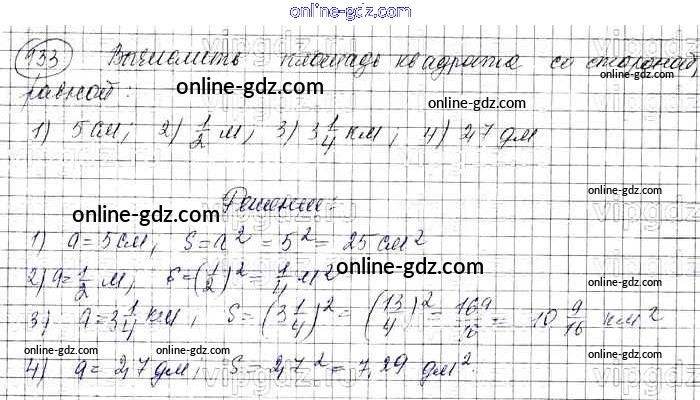 online-gdz.com
933 Вычислить площадь квадрата со стороной,
online-gdz.com
равной:
online-gdz.com
1) 5 см; 2) 1/2 м; 3) 3 1/4 км; 4) 2,7 дм
online-gdz.com
Решение:
online-gdz.com
1) a = 5 см, S = a² = 5² = 25 см²
2) a = 1/2 м, S = (1/2)² = 1/4 м²
online-gdz.com
3) a = 3 1/4 км, S = (3 1/4)² = (13/4)² = 169/16 = 10 9/16 км²
online-gdz.com online-gdz.com online-gdz.com
4) a = 2,7 дм, S = 2,7² = 7,29 дм².
online-gdz.com